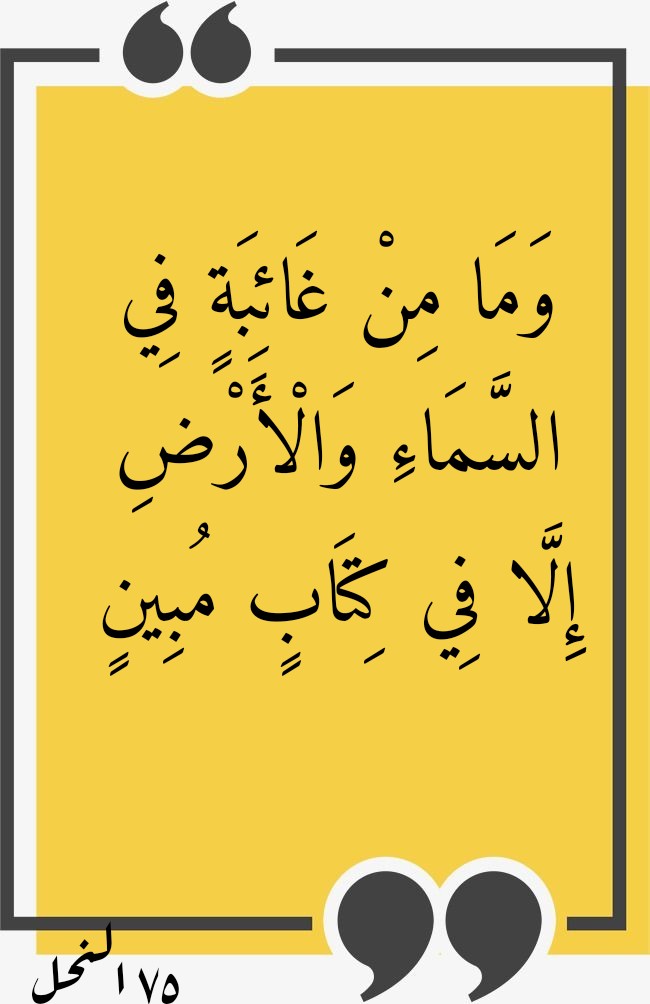 وَمَا مِنْ غَائِبَةٍ فِي
السَّمَاءِ وَالْأَرْضِ
إِلَّا فِي كِتَابٍ مُبِينٍ
٧٥ النحل